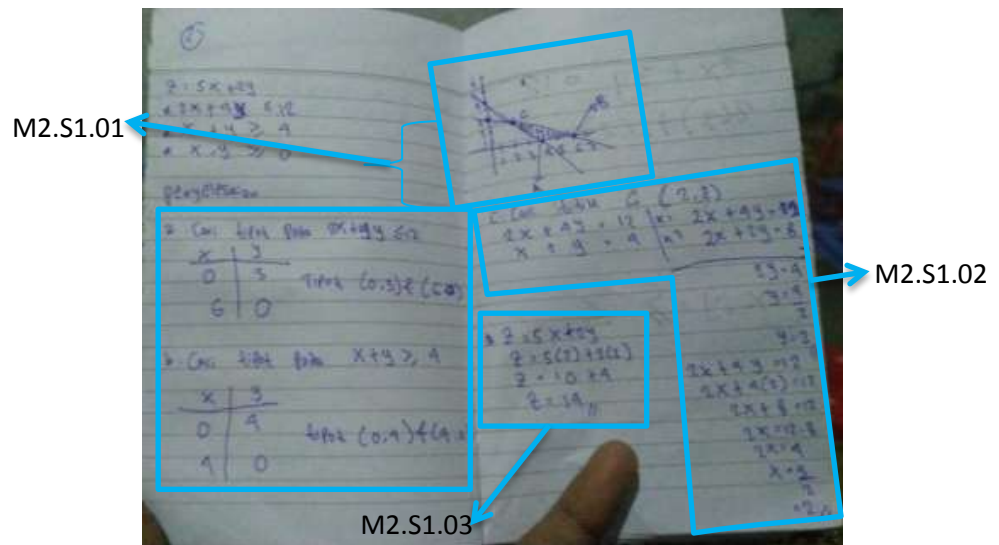 2
z = 5x + 2y
• 2x + 4y ≤ 12
• x + y ≥ 4
• x, y ≥ 0
M2.S1.01
penyelesaian
a. Cari titik pada 2x+4y ≤ 12
x | y
0 | 3
6 | 0
titik (0,3) & (6,0)
b. Cari titik pada x+y ≥ 4
x | y
0 | 4
4 | 0
titik (0,4) & (4
A
B
C
c. Cari titik C (2,2)
2x + 4y = 12 | x1 2x + 4y = 12
x + y = 4 | x2 2x + 2y = 8
2y = 4
y = 4/2
y = 2
2x + 4y = 12
2x + 4(2) = 12
2x + 8 = 12
2x = 12 - 8
2x = 4
x = 4/2
= 2 //
M2.S1.02
z = 5x + 2y
z = 5(2) + 2(2)
z = 10 + 4
z = 14 //
M2.S1.03